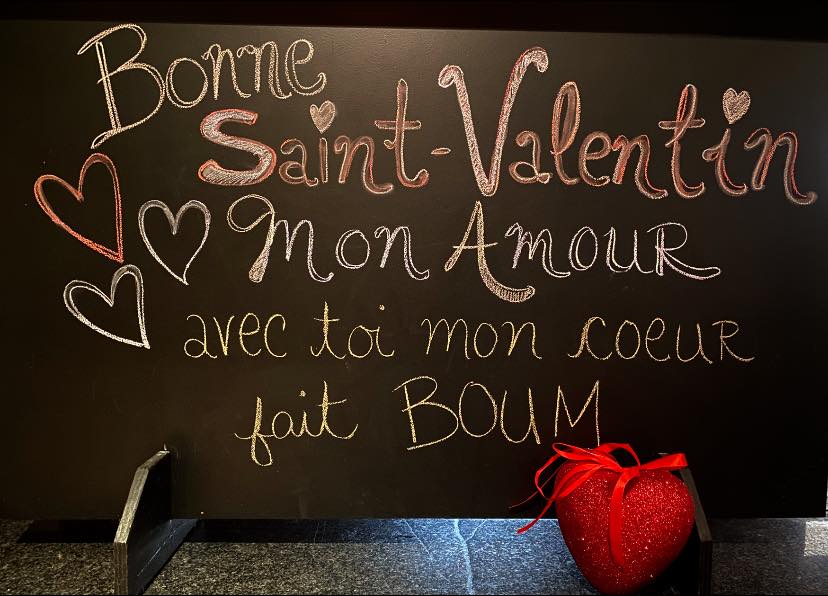 Bonne
Saint-Valentin
Mon Amour
avec toi mon coeur
fait BOUM